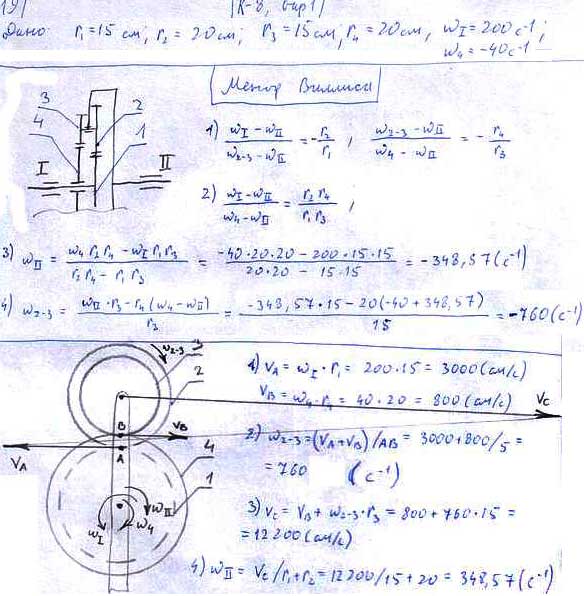 19) (К-8, вар 1)
Дано r₁=15 см; r₂ = 20см; r₃ = 15см; r₄ = 20см, ω_I = 200 с⁻¹;
ω₄ = -40 с⁻¹
Метод Виллиса
3
4
2
1
I
II
1) (ω_I - ω_II)/(ω₂₋₃ - ω_II) = -r₂/r₁ ; (ω₂₋₃ - ω_II)/(ω₄ - ω_II) = - r₄/r₃
2) (ω_I - ω_II)/(ω₄ - ω_II) = r₂ r₄/r₁ r₃ ;
3) ω_II = (ω₄ r₂ r₄ - ω_I r₁ r₃)/(r₂ r₄ - r₁ r₃) = (-40·20·20 - 200·15·15)/(20·20 - 15·15) = -348,57 (с⁻¹)
4) ω₂₋₃ = (ω_II · r₃ - r₄ (ω₄ - ω_II))/r₃ = (-348,57·15 - 20(-40 + 348,57))/15 = -760 (с⁻¹)
ω₂₋₃
3
2
V_C
B
V_B
V_A
A
4
1
ω_II
ω_I
ω₄
1) V_A = ω_I · r₁ = 200·15 = 3000 (см/с)
V_B = ω₄ · r₄ = 40·20 = 800 (см/с)
2) ω₂₋₃ = (V_A + V_B)/AB = 3000+800/5 =
= 760 (с⁻¹)
3) V_C = V_B + ω₂₋₃ · r₃ = 800 + 760·15 =
= 12200 (см/с)
4) ω_II = V_C/r₁+r₂ = 12200/15+20 = 348,57 (с⁻¹)